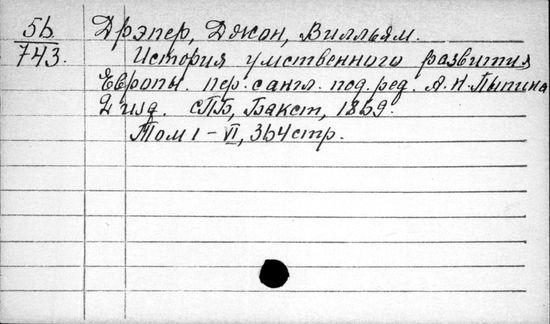 56 Дрэпер, Джон, Вилльям.
743. История умственного развития
Европы. пер. с англ. под. ред. А. Н. Пыпина
2 изд. СПБ, Бакст, 1869.
Том I - VI, 364 стр.